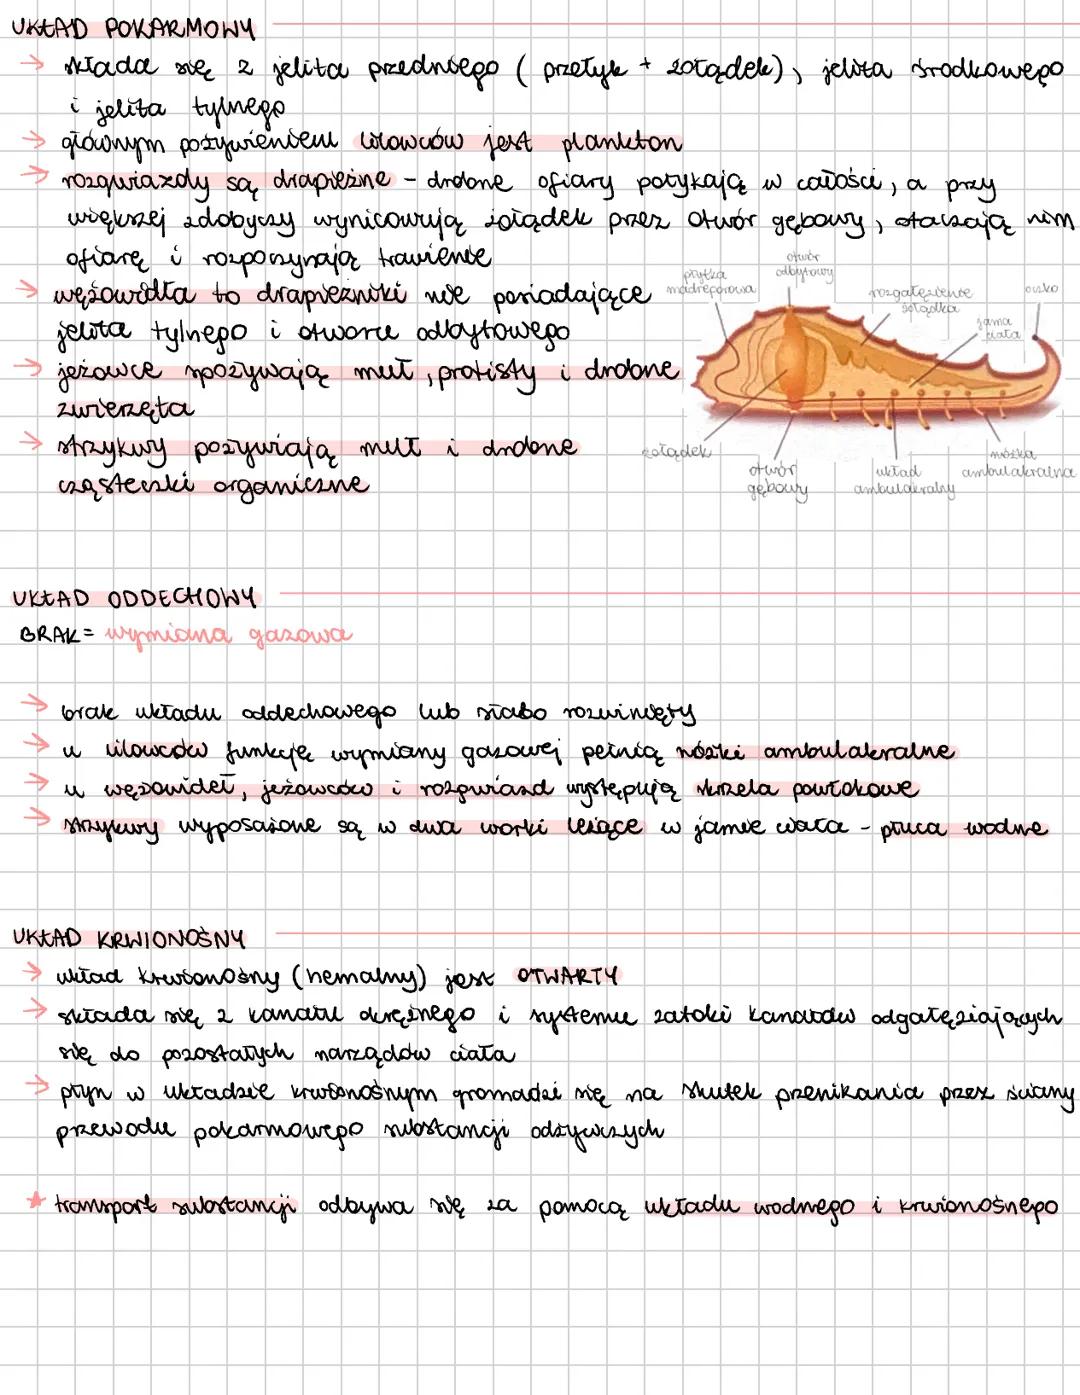 UKŁAD POKARMOWY
→ składa się z jelita przedniego ( przełyk + żołądek), jelita środkowego
i jelita tylnego
→ głównym pożywieniem liliowców jest plankton
→ rozgwiazdy są drapieżne - drobne ofiary połykają w całości, a przy
większej zdobyczy wynicowują żołądek przez otwór gębowy, otaczają nim
ofiarę i rozpoczynają trawienie
→ wężowidła to drapieżniki nie posiadające
jelita tylnego i otworu odbytowego
→ jeżowce spożywają muł, protisty i drobne
zwierzęta
→ strzykwy pożywiają muł i drobne
cząsteczki organiczne
płytka
madreporowa
otwór
odbytowy
rozgałęzienie
żołądka
jama
ciała
oczko
żołądek
otwór
gębowy
układ
ambulakralny
nóżka
ambulakralna
UKŁAD ODDECHOWY
BRAK = wymiana gazowa
→ brak układu oddechowego lub słabo rozwinięty
→ u liliowców funkcję wymiany gazowej pełnią nóżki ambulakralne
→ u wężowideł, jeżowców i rozgwiazd występują skrzela powłokowe
→ strzykwy wyposażone są w dwa worki leżące w jamie ciała - płuca wodne
UKŁAD KRWIONOŚNY
→ układ krwionośny (hemalny) jest OTWARTY
→ składa się z kanału okrężnego i systemu zatoki kanałów odgałęziających
się do pozostałych narządów ciała
→ płyn w układzie krwionośnym gromadzi się na skutek przenikania przez ściany
przewodu pokarmowego substancji odżywczych
★ transport substancji odbywa się za pomocą układu wodnego i krwionośnego